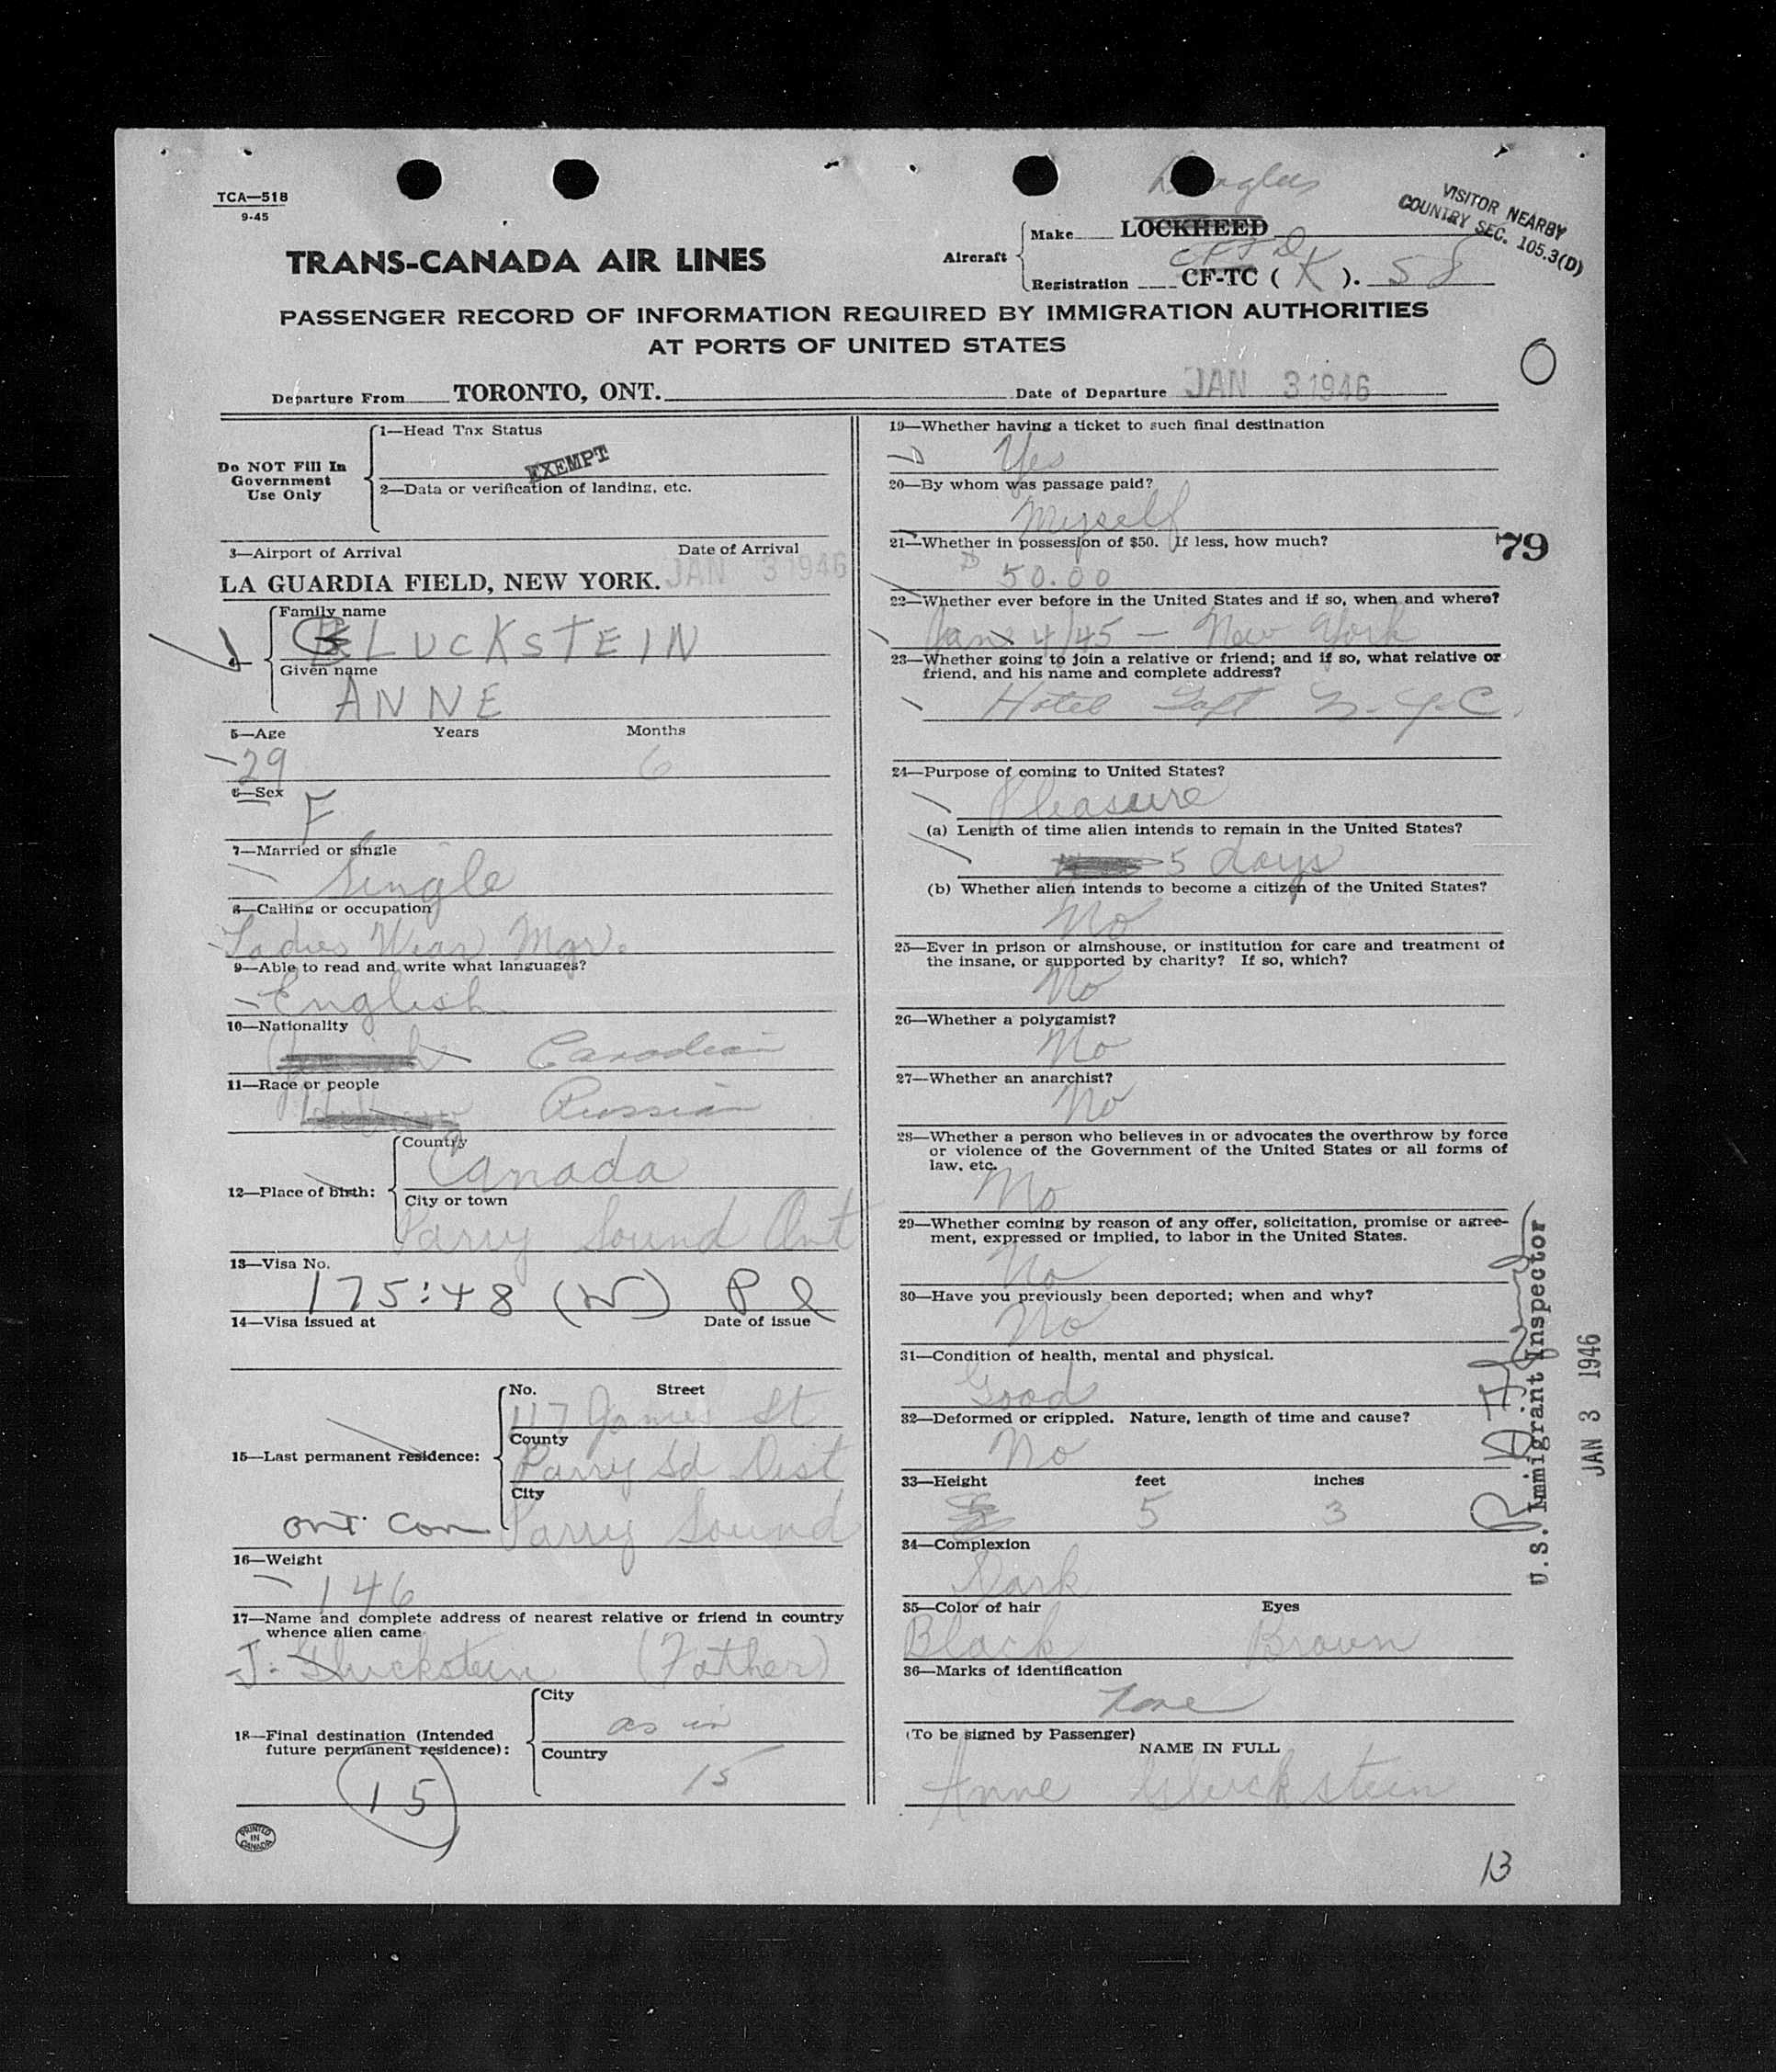 TCA—518
9-45
Douglas
VISITOR NEARBY
COUNTRY SEC. 105.3(D)
TRANS-CANADA AIR LINES
Aircraft
Make LOCKHEED
Registration CF-TC ( K ). 58
PASSENGER RECORD OF INFORMATION REQUIRED BY IMMIGRATION AUTHORITIES
AT PORTS OF UNITED STATES
Departure From TORONTO, ONT. Date of Departure JAN 3 1946
Do NOT Fill In
Government
Use Only
1—Head Tax Status
EXEMPT
2—Data or verification of landing, etc.
3—Airport of Arrival Date of Arrival
LA GUARDIA FIELD, NEW YORK. JAN 3 1946
4—
Family name
GLUCKSTEIN
Given name
ANNE
5—Age Years Months
29 6
6—Sex
F
7—Married or single
Single
8—Calling or occupation
Ladies Wear Mgr.
9—Able to read and write what languages?
English
10—Nationality
Canadian
11—Race or people
Russian
12—Place of birth:
Country
Canada
City or town
Parry Sound Ont
13—Visa No.
175:48 (W) Pl
14—Visa issued at Date of issue
15—Last permanent residence:
No. Street
117 James St
County
Parry Sd Dist
City
Ont. Can Parry Sound
16—Weight
146
17—Name and complete address of nearest relative or friend in country
whence alien came
J. Gluckstein (Father)
18—Final destination (Intended
future permanent residence):
City
as in
Country
15
15
PRINTED
IN
CANADA
19—Whether having a ticket to such final destination
Yes
20—By whom was passage paid?
Myself
21—Whether in possession of $50. If less, how much?
$ 50.00
79
22—Whether ever before in the United States and if so, when and where?
Jan 4/45 — New York
23—Whether going to join a relative or friend; and if so, what relative or
friend, and his name and complete address?
Hotel Taft N.Y.C.
24—Purpose of coming to United States?
Pleasure
(a) Length of time alien intends to remain in the United States?
5 days
(b) Whether alien intends to become a citizen of the United States?
No
25—Ever in prison or almshouse, or institution for care and treatment of
the insane, or supported by charity? If so, which?
No
26—Whether a polygamist?
No
27—Whether an anarchist?
No
28—Whether a person who believes in or advocates the overthrow by force
or violence of the Government of the United States or all forms of
law, etc.
No
29—Whether coming by reason of any offer, solicitation, promise or agree-
ment, expressed or implied, to labor in the United States.
No
30—Have you previously been deported; when and why?
No
31—Condition of health, mental and physical.
Good
32—Deformed or crippled. Nature, length of time and cause?
No
33—Height feet inches
5 3
34—Complexion
Dark
35—Color of hair Eyes
Black Brown
36—Marks of identification
none
(To be signed by Passenger)
NAME IN FULL
Anne Gluckstein
U.S. Immigrant Inspector
JAN 3 1946
13